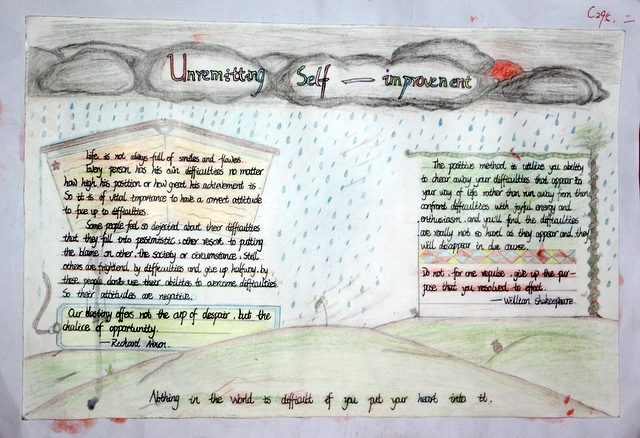 C295. 二
Unremitting Self — improvement
Life is not always full of smiles and flowers.
Every person has his own difficulties no matter
how high his position or how great his achievement is.
So it is of vital importance to have a correct attitude
to face up to difficulties.
Some people feel so dejected about their difficulties
that they fall into pessimistic, other resort to putting
the blame on other, the society or circumstance, still
others are frightend by difficulties and give up halfway, by
these people dont use their abilities to overcome difficulties.
So their attitudes are negative.
Our destiny offers not the cup of despair, but the
chalice of opportunity.
— Richard Nixon.
The positive method is utilize you ability
to clear away your difficulties that appear in
your way of life rather than run away from them,
confront difficulties with joyful energy and
enthusiasm, and you'll find the difficulties
are really not so hard as they appear and they
will disappear in due course.
Do not, for one repulse, give up the pur-
pose that you resolved to effect.
— William Shakespeare
Nothing in the world is difficult if you put your heart into it.